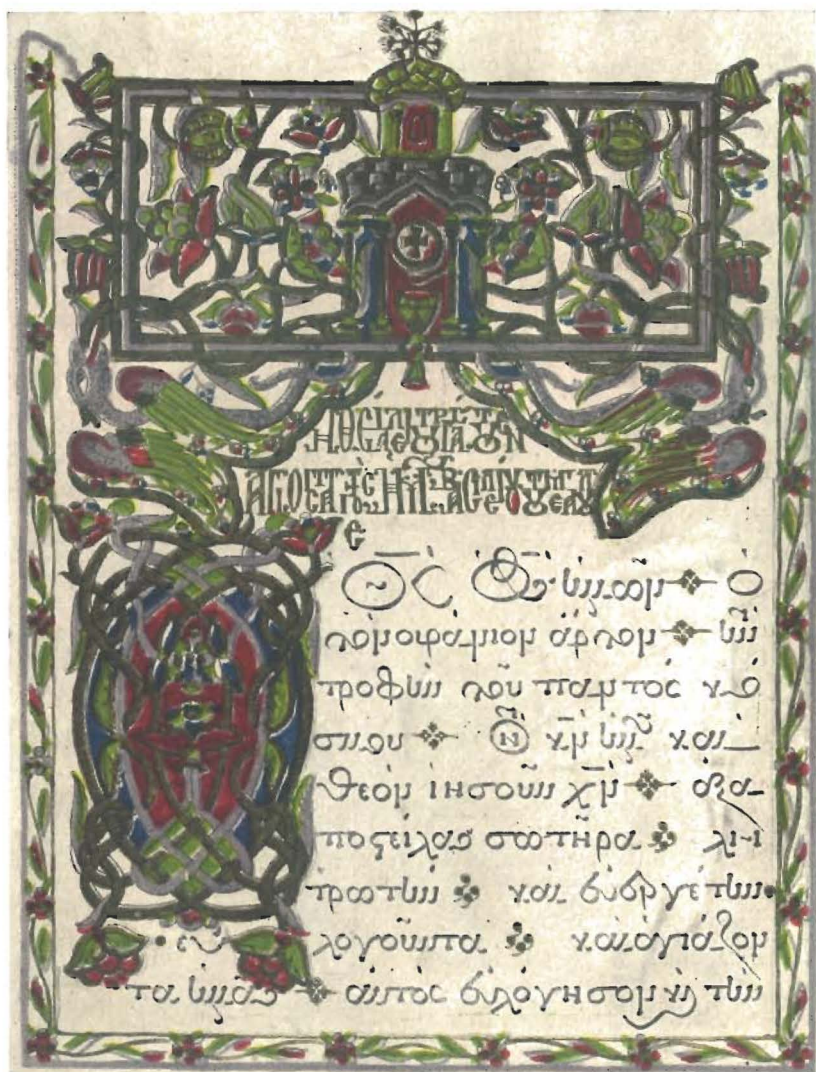 Η ΘΕΙΑ ΛΕΙΤΟΥΡΓΙΑ ΤΟΥ ΕΝ
ΑΓΙΟΙΣ ΠΑΤΡΟΣ ΗΜΩΝ ΒΑΣΙΛΕΙΟΥ ΤΟΥ ΜΕΓΑΛΟΥ
Ο Θς ὁ Θς ἡμῶν ὁ
τὸν οὐράνιον ἄρτον τὴν
τροφὴν τοῦ παντὸς κό
σμου τὸν κ̅ν̅ ἡμῶν καὶ
θεὸν ἰησοῦν χ̅ν̅ ἐξα
ποστείλας σωτῆρα λυ
τρωτὴν καὶ εὐεργέτην
εὐλογοῦντα καὶ ἁγιάζον
τα ἡμᾶς αὐτὸς εὐλόγησον τὴν